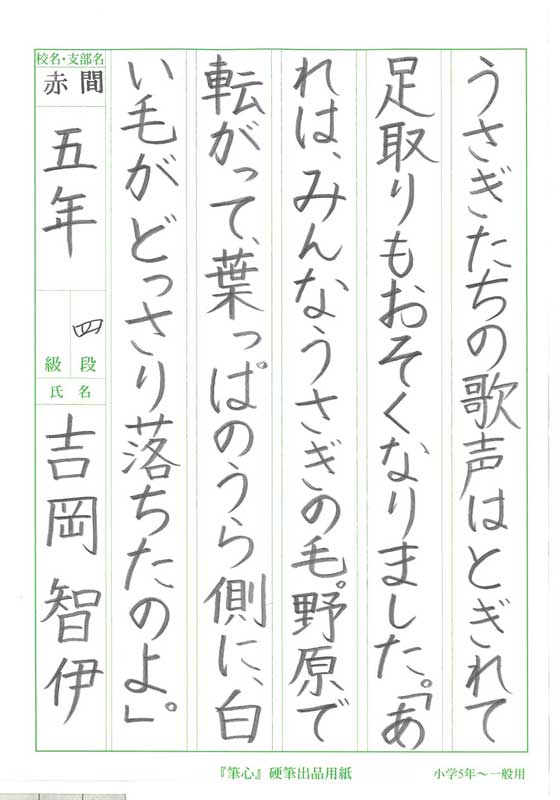 うさぎたちの歌声はとぎれて
足取りもおそくなりました。「あ
れは、みんなうさぎの毛。野原で
転がって、葉っぱのうら側に、白
い毛がどっさり落ちたのよ。」
校名・支部名
赤間
五年
四
級 段
氏名
吉岡智伊
『筆心』硬筆出品用紙
小学5年～一般用